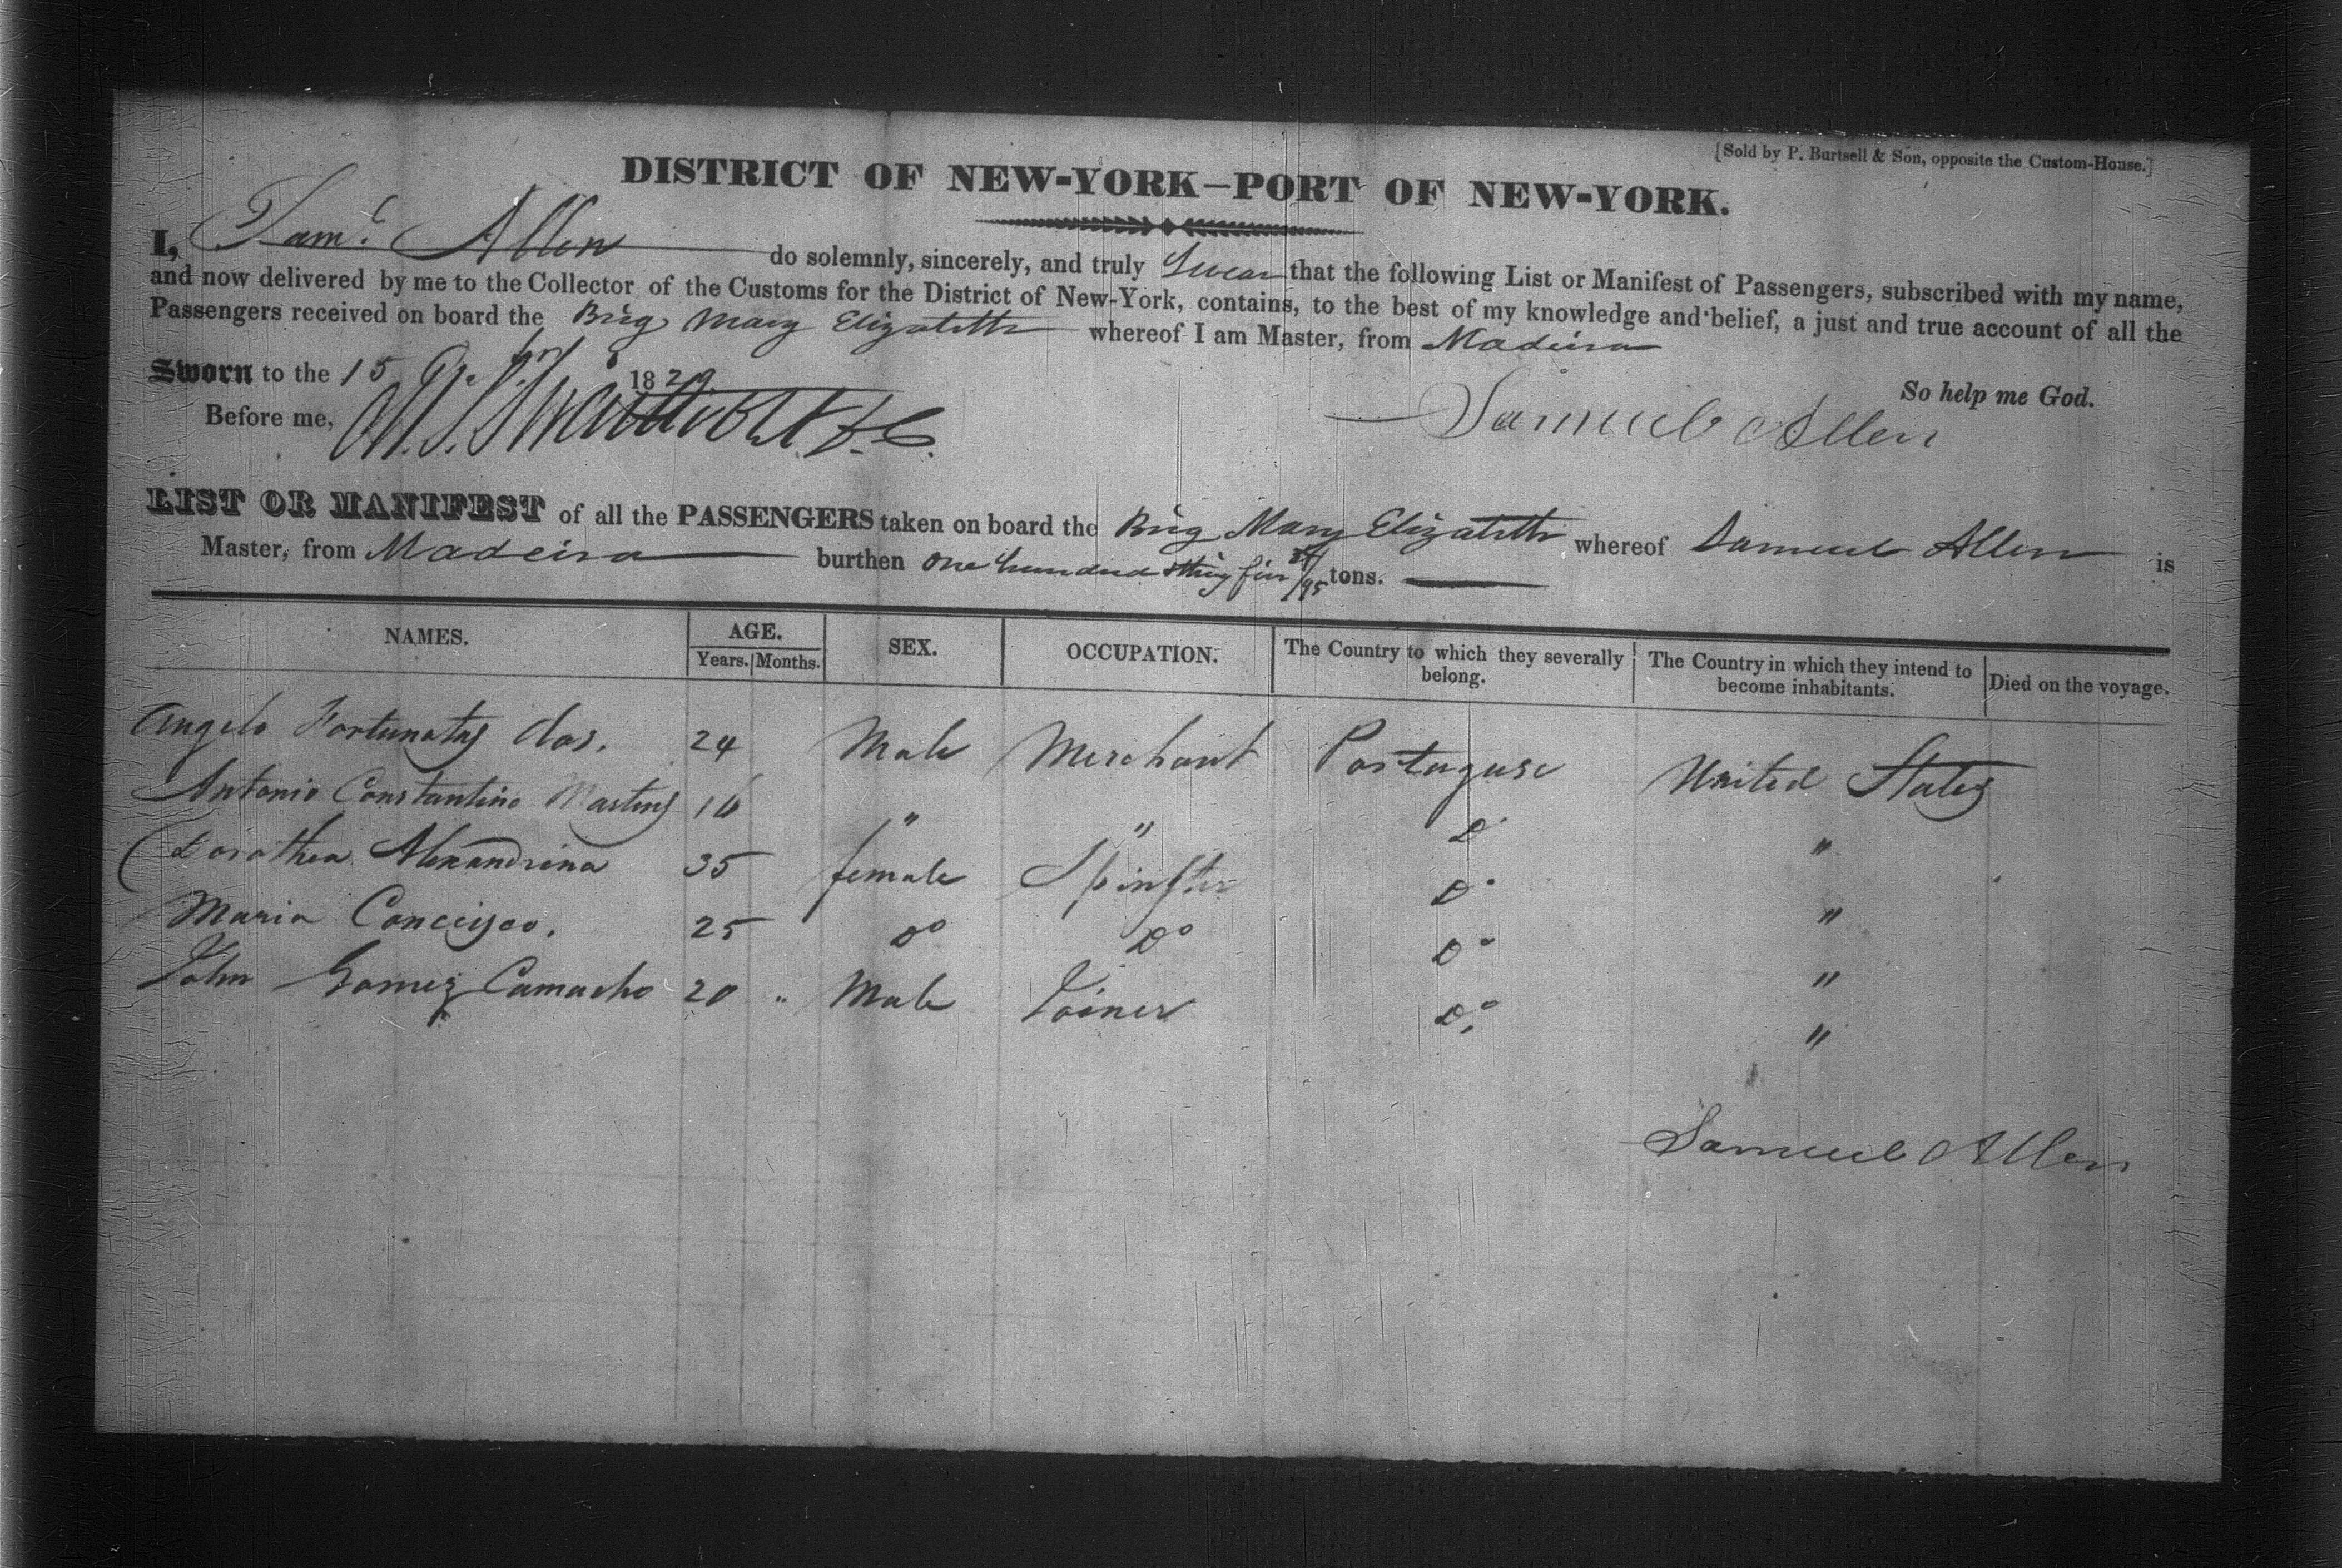 [Sold by P. Bartsell & Son, opposite the Custom-House.]
DISTRICT OF NEW-YORK—PORT OF NEW-YORK.
I, Saml. Allen do solemnly, sincerely, and truly Swear that the following List or Manifest of Passengers, subscribed with my name,
and now delivered by me to the Collector of the Customs for the District of New-York, contains, to the best of my knowledge and belief, a just and true account of all the
Passengers received on board the Brig Mary Elizabeth whereof I am Master, from Madeira
Sworn to the 15 1829.
So help me God.
Before me,
Samuel Allen
LIST OR MANIFEST of all the PASSENGERS taken on board the Brig Mary Elizabeth whereof Samuel Allen is
Master, from Madeira burthen One hundred thirty five /95 tons.
NAMES. AGE. Years. Months. SEX. OCCUPATION. The Country to which they severally belong. The Country in which they intend to become inhabitants. Died on the voyage.
Angelo Fortunatus 24 Male Merchant Portuguse United States
Antonio Constantino Martins 16 " " Do "
Dorothea Alexandrina 35 female Spinster Do "
Maria 25 Do Do Do "
John Gomez Camacho 20 " Male Joiner Do "
Samuel Allen